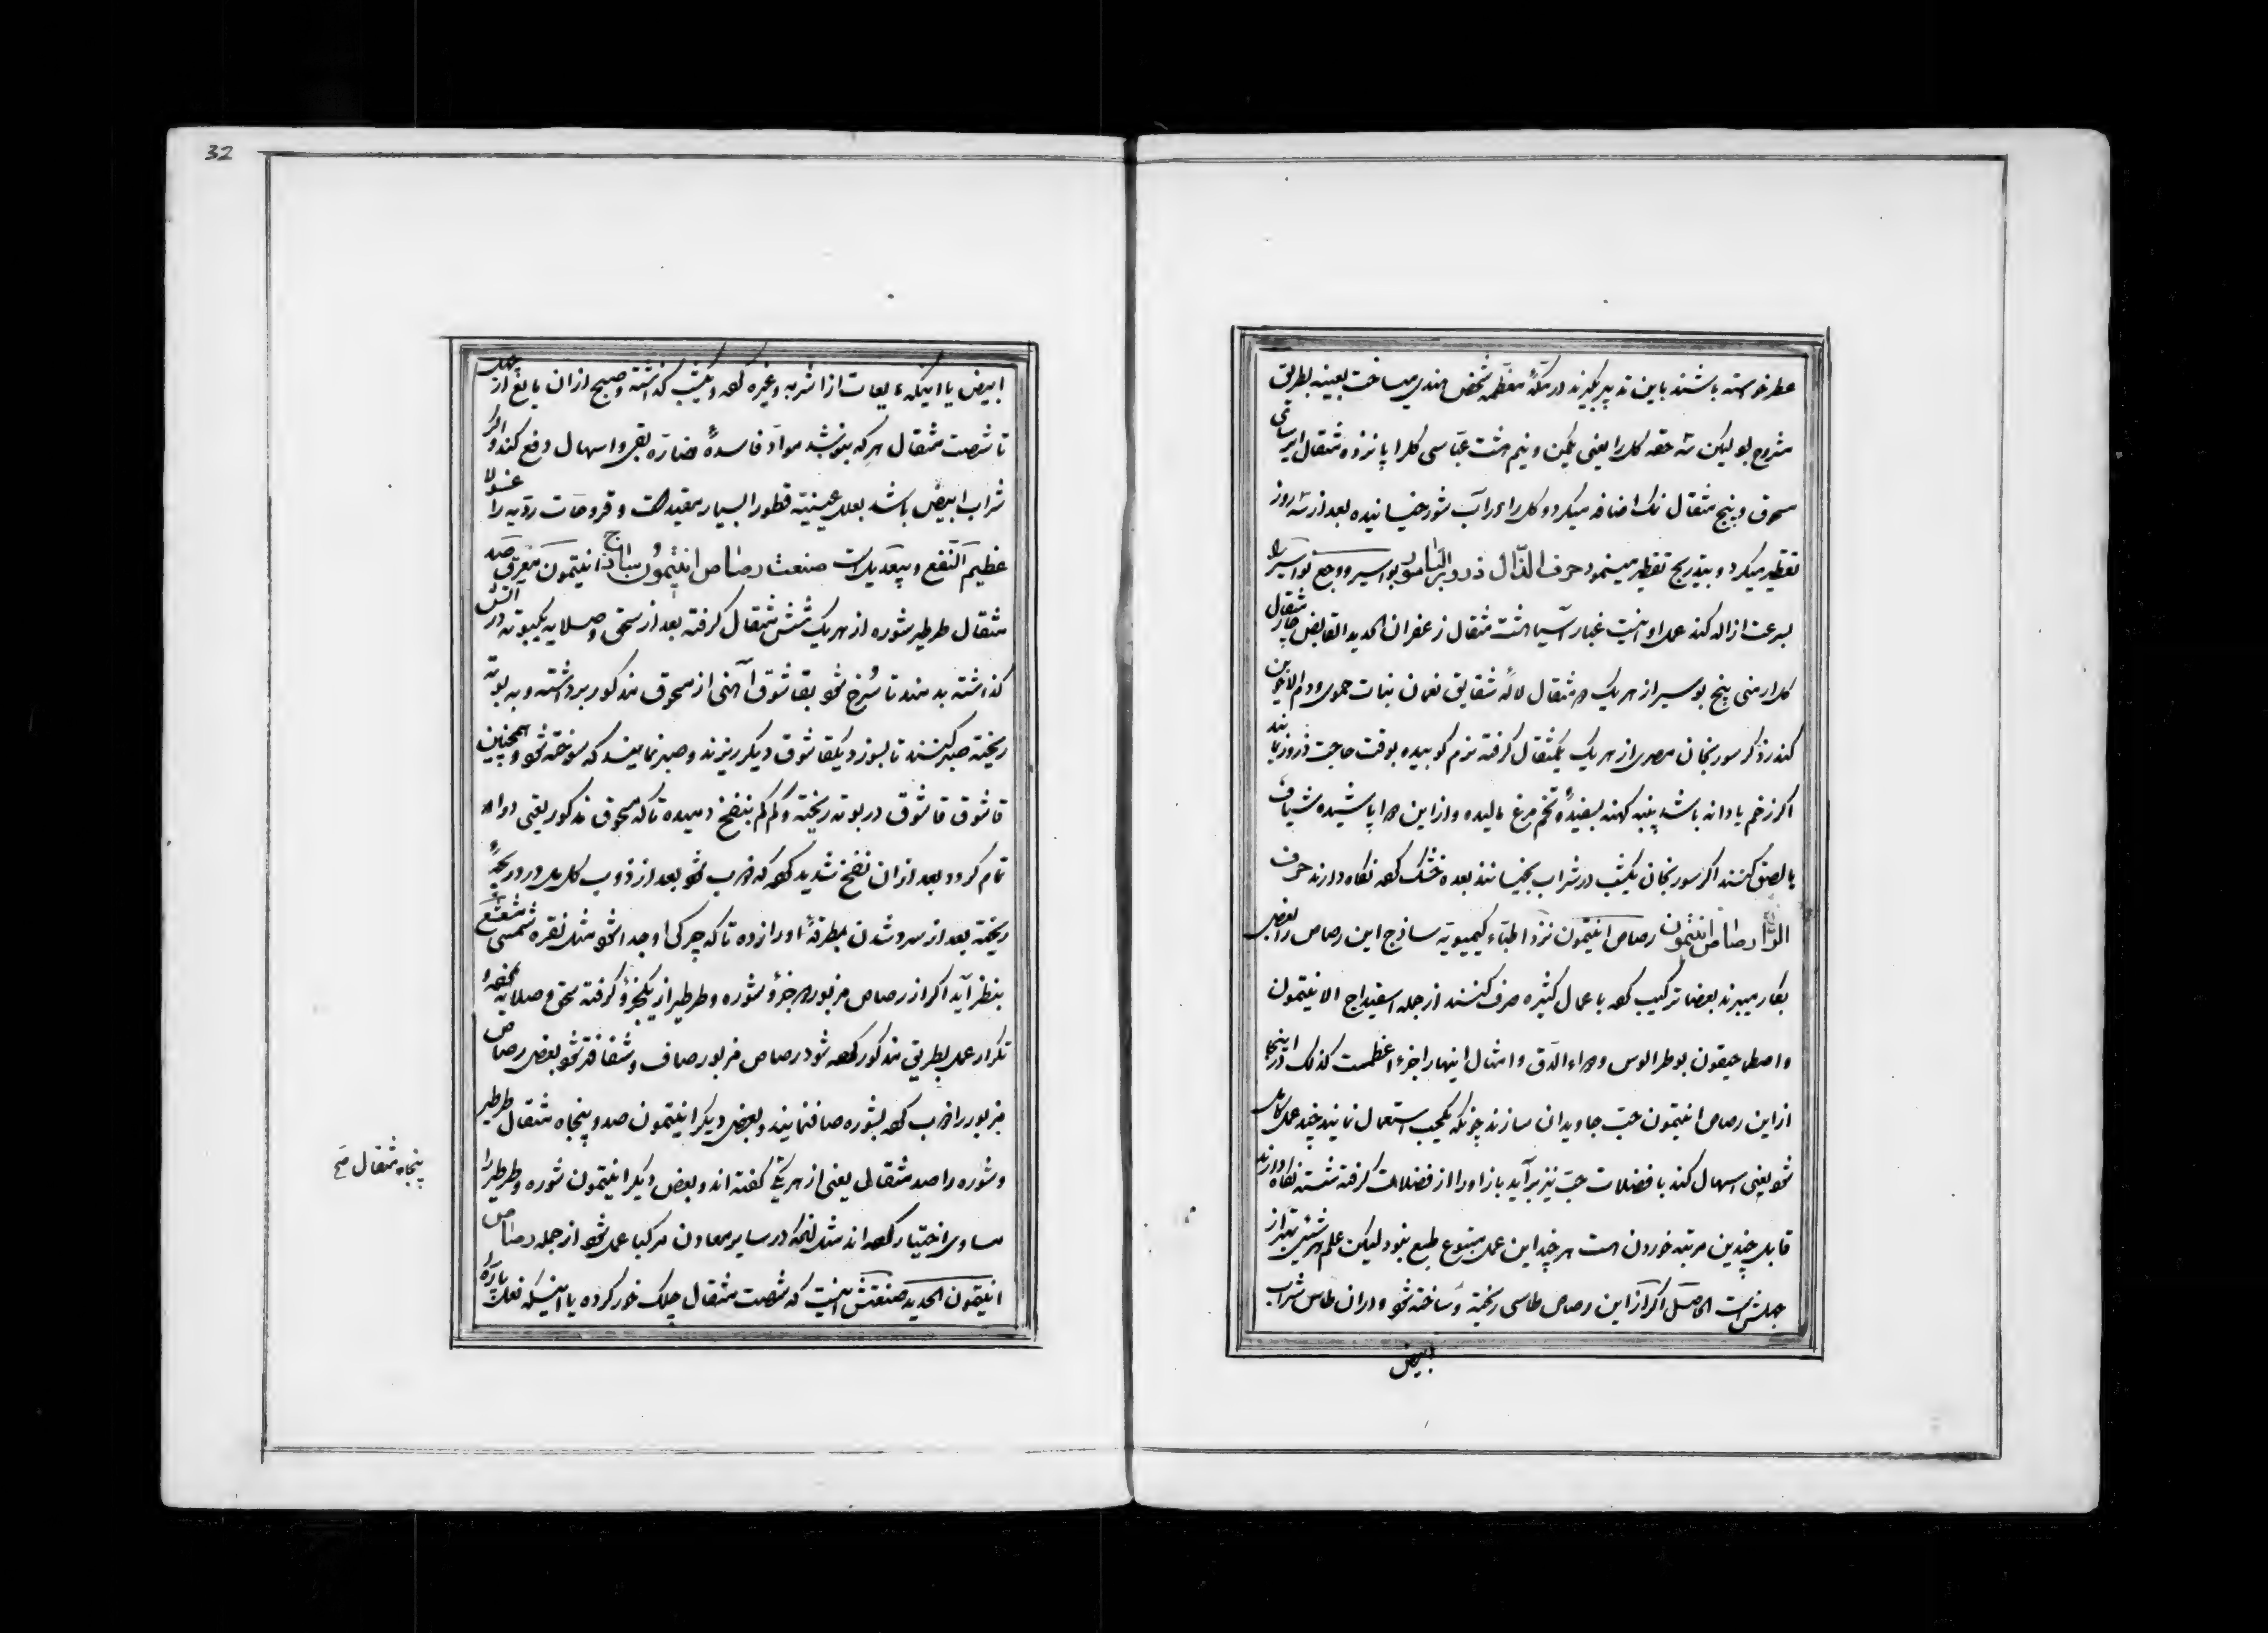 عطر خواسته باشند باین تدبیر بگیرند در مکهٔ معظمه شخص هندی میساخت بعینه بطریق
مشروح بود لیکن سه حقه گل را یعنی یکمن و نیم هشت عباسی گل را پانزده مثقال ایرسای
مسحوق و پنج مثقال نمک اضافه میکرد و گل را در آب شور خیسانیده بعد از سه روز
تقطیر میکرد و بتدریج تقطیر مینمود حرف الذال ذرور الباسور بواسیر و وجع بواسیر را
بسرعت ازاله کند عمل او اینست غبار آسیا هشت مثقال زعفران الحدید القابض چار مثقال
گل ارمنی پنج بوسیر از هر یک مثقال لاله شقایق نعمان نبات حموی و دم الاخوین
کندر ذکر سورنجان مصری از هر یک یکمثقال گرفته نرم کوبیده بوقت حاجت ذرور نمایند
اگر زخم یا دانه باشد پنبه کهنه بسفیدهٔ تخم مرغ مالیده و از این دوا پاشیده شیاف
یا لصق کنند اگر سورنجان یکشب در شراب بخیسانند بعده خشک کرده نگاه دارند حرف
الراء رصاص انتیمون رصاص انتیمون نزد اطباء کیمیویه ساذج این رصاص را بعضی
بکار میبرند بعضا ترکیب کرده باعمال کثیره صرف کنند از جمله اسفیداج الانتیمون
واصطماحیقون بوطرالوس و دواء الدق و امثال اینها را جزء اعظمست کذلک در اینجا
از این رصاص انتیمون حب جاویدان سازند چونکه یکحب استعمال نمایند چند عمل کامل
شود یعنی اسهال کند با فضلات حب نیز برآید باز او را از فضلات گرفته شسته نگاه دارند
قابل چندین مرتبه خوردن است هر چند این عمل متبوع طبع نبود لیکن علم هر شئ بهتر از
جهلش است الحاصل اگر از این رصاص طاسی ریخته و ساخته شود و در آن طاس شراب
ابیض
32
ابیض یا اینکه مایعات از اشربه و غیره کرده و یکشب گذاشته و صبح از آن مایع از چهل
تا شصت مثقال هر که بنوشد مواد فاسدهٔ ضاره بقی و اسهال دفع کند و اگر
شراب ابیض باشد بعلل عینیه قطورا بسیار مفید است و قروحات ردیه را غسولا
عظیم النفع و بیعدیل است صنعت رصاص انتیمون ساذج انتیمون معرقی صد
مثقال طرطیر شوره از هر یک شش مثقال گرفته بعد از سحق و صلایه یکبوته در آتش
گذاشته بدمند تا سرخ شود بقاشوق آهنی از مسحوق مذکور برداشته و به بوته
ریخته صبر کنند تا بسوزد یکقاشوق دیگر ریزند و صبر نمایند که سوخته شود و همچنین
قاشوق قاشوق در بوته ریخته و کم کم بنفخ دمیده تا که مسحوق مذکور یعنی دوا
تمام گردد بعد از آن نفخ شدید کرده که ذوب شود بعد از ذوب کامل در ریجهٔ
ریخته بعد از سرد شدن بمطرقهٔ او را زده تا که چرکی او جدا شود مثل نقره شمسی مشعشع
بنظر آید اگر از رصاص مزبور جزؤ و شوره و طرطیر از یکجزؤ گرفته سحق و صلایه
تکرار عمل بطریق مذکور کرده شود رصاص مزبور صاف و شفافتر شود بعض رصاص
مزبور را ذوب کرده بشوره صاف نمایند و بعض دیگر انتیمون صد و پنجاه مثقال طرطیر
و شوره را صد مثقال یعنی از هر یک گفته اند و بعض دیگر انتیمون شوره و طرطیر را
مساوی اختیار کرده اند در سایر معادن مرکبا عمل شود از جمله رصاص
انتیمون الحدید صنعتش اینست که شصت مثقال چلک خورکرده یا اینکه نعل پاره
پنجاه مثقال صح